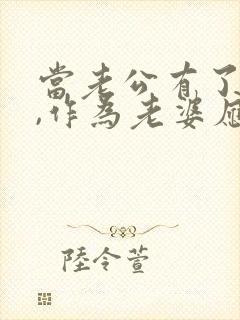 當老公有了
,作為老婆應
陸令萱